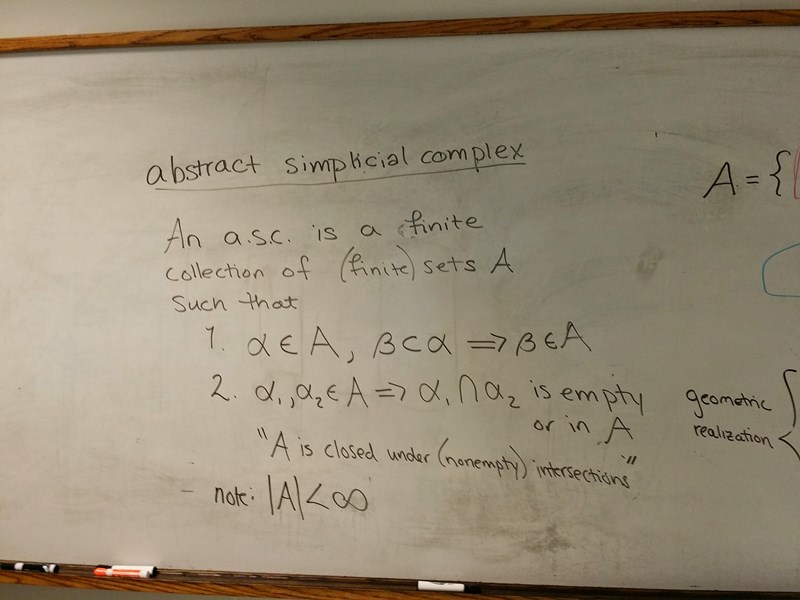 abstract simplicial complex
An a.s.c. is a finite
collection of (finite) sets A
such that
1. α ∈ A, β ⊂ α ⟹ β ∈ A
2. α₁, α₂ ∈ A ⟹ α₁ ∩ α₂ is empty
or in A
"A is closed under (nonempty) intersections"
- note: |A| < ∞
A = {
geometric
realization